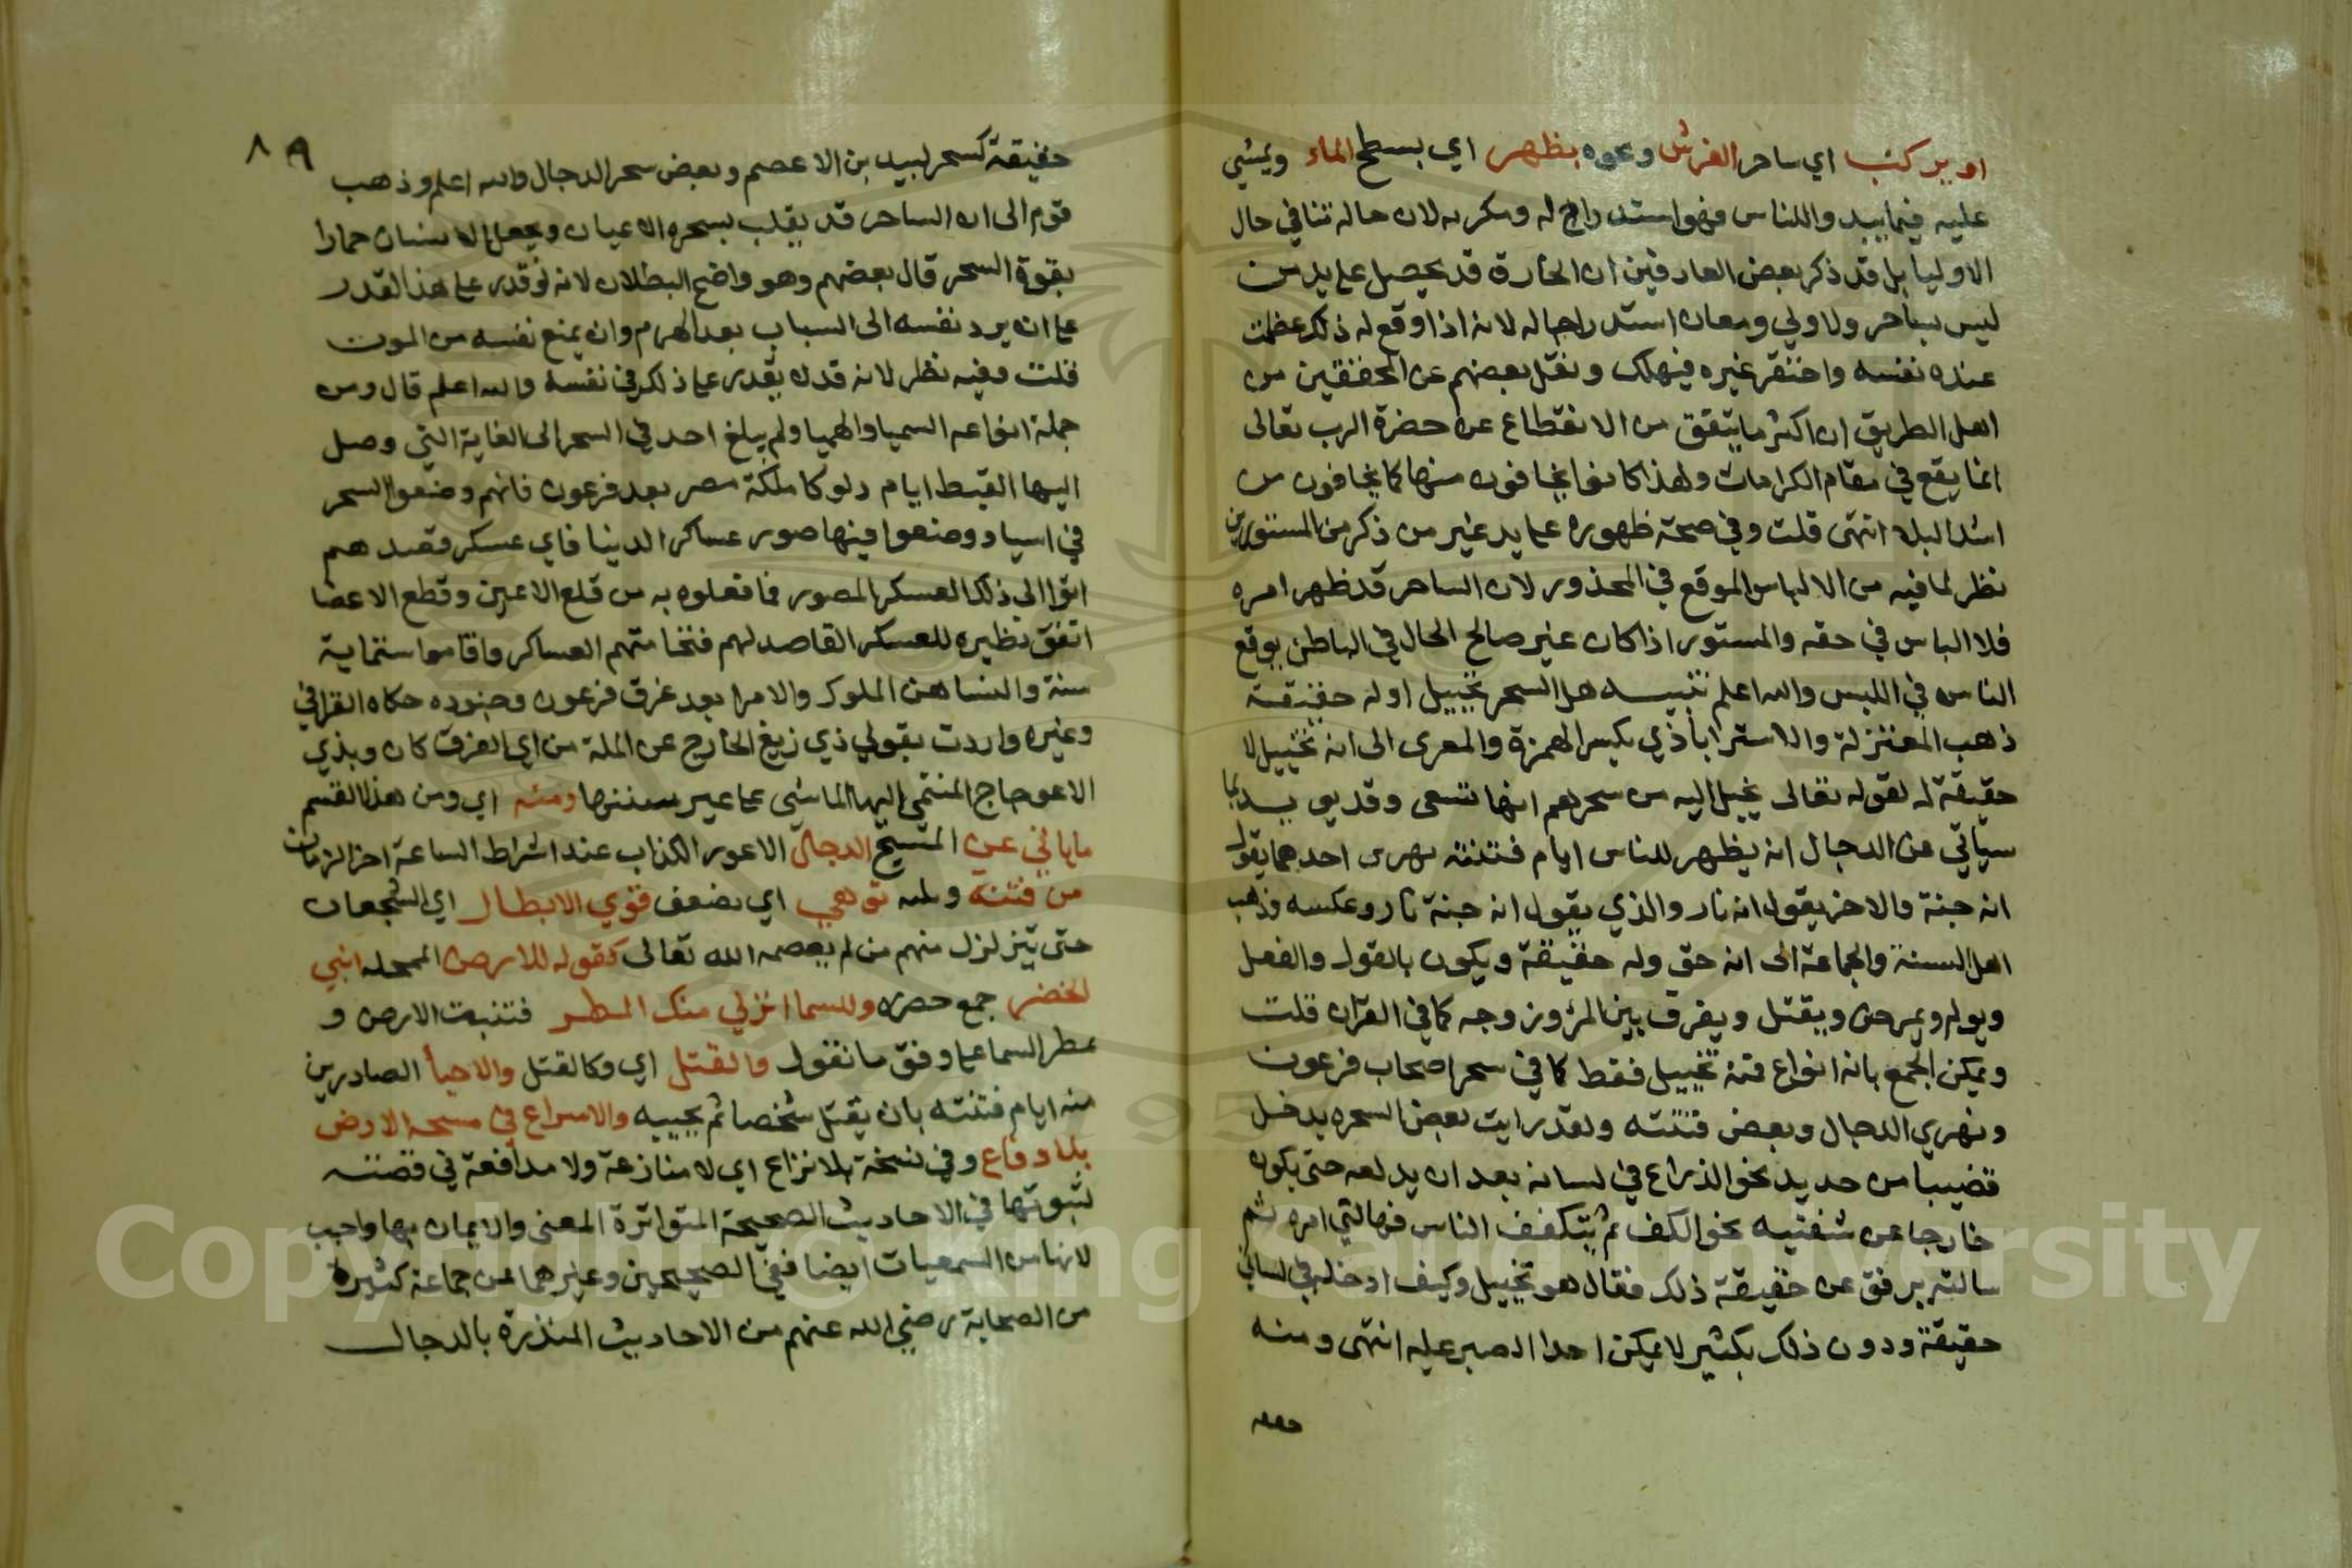 او يركب اي ساحر الفرش ونحوه بظهر اي بسطح الماء ويمشي
عليه فيما يبدو للناس فهو استدراج له ومكر به لان حاله تنافي حال
الاوليا بل قد ذكر بعض العارفين ان الخارق قد يحصل على يد من
ليس بساحر ولا ولي وكان استدراجا له لانه اذا وقع له ذلك عظمت
عنده نفسه واحتقر غيره فيهلك ونقل بعضهم عن المحققين من
اهل الطريق ان اكثر ما يتفق من الانقطاع عن حضرة الرب تعالى
انما يقع في مقام الكرامات ولهذا كانوا يخافون منها كما يخافون من
اشد البلا انتهى قلت وفي صحة ظهوره على يد غير من ذكر من المستورين
نظر لما فيه من الالباس الموقع في المحذور لان الساحر قد ظهر امره
فلا الباس في حقه والمستور اذا كان غير صالح الحال في الباطن يوقع
الناس في اللبس والله اعلم تنبيه هل السحر تخييل او له حقيقة
ذهب المعتزلة والاستراباذي بكسر الهمزة والمعرى الى انه تخييل لا
حقيقة له لقوله تعالى يخيل اليه من سحرهم انها تسعى وقد يويد بما
سياتي من الدجال انه يظهر للناس ايام فتنته نهرين احدهما يقول
انه جنة والاخر يقول انه نار والذي يقول انه جنة نار وعكسه وذهب
اهل السنة والجماعة الى انه حق وله حقيقة ويكون بالقول والفعل
ويولم ويمرض ويقتل ويفرق بين المرؤ وزوجه كما في القرآن قلت
ويمكن الجمع بانه انواع فمنه تخييل فقط كما في سحر اصحاب فرعون
ونهري الدجال وبعض فتنته ولقد رايت بعض السحره يدخل
قضيبا من حديد نحو الذراع في لسانه بعد ان يدلعه حتى يكون
خارجا عن شفتيه نحو الكف ثم يتكفف الناس فهالني امره ثم
سالته برفق عن حقيقة ذلك فقال هو تخييل وكيف ادخله في لساني
حقيقة ودون ذلك بكثير لا يمكن احدا الصبر عليه انتهى ومنه
حقيقة
٨٩
حقيقة كسحر لبيد بن الاعصم وبعض سحر الدجال والله اعلم وذهب
قوم الى ان الساحر قد يقلب بسحره الاعيان ويجعل الانسان حمارا
بقوة السحر قال بعضهم وهو واضح البطلان لانه لو قدر على هذا القدر
على ان يرد نفسه الى الشباب بعد الهرم وان يمنع نفسه من الموت
قلت وفيه نظر لانه قد لا يقدر على ذلك في نفسه والله اعلم قال ومن
جملة انواعه السميا والهميا ولم يبلغ احد في السحر الى الغاية التي وصل
اليها القبط ايام دلوكا ملكة مصر بعد فرعون فانهم وضعوا السحر
في اسيا ووضعوا فيها صور عساكر الدنيا فاي عسكر قصدهم
اتوا الى ذلك العسكر المصور فما فعلوه به من قلع الاعين وقطع الاعضا
اتفق نظيره للعسكر القاصد لهم فتخافتهم العساكر واقاموا ستماية
سنة والنسا هن الملوك والامرا بعد غرق فرعون وجنوده حكاه القرافي
وغيره واردت بقولي ذي زيغ الخارج عن الملة من اي الفرق كان وبذي
الاعوجاج المنتمي اليها الماشي على غير سننها ومنه اي ومن هذا القسم
ماياتي عن المسيح الدجال الاعور الكذاب عند اشراط الساعة اخر الزمان
من فتنة توهي اي تضعف قوي الابطال اي الشجعان
حتى يتزلزل منهم من لم يعصمه الله تعالى كقوله للارض الممحلة انبتي
الخضر جمع خضره وللسما انزلي منك المطر فتنبت الارض و
تمطر السما على وفق ما تقول والقتل اي وكالقتل والاحيأ الصادرين
منه ايام فتنته بان يقتل شخصا ثم يحييه والاسراع في مسحه الارض
بلا دفاع وفي نسخة بلا نزاع اي لا منازعة ولا مدافعة في قصته
لثبوتها في الاحاديث الصحيحة المتواترة المعنى والايمان بها واجب
لانها من السمعيات ايضا ففي الصحيحين وغيرهما عن جماعة كثيرة
من الصحابة رضي الله عنهم من الاحاديث المنذرة بالدجال
Copyright © King Saud University